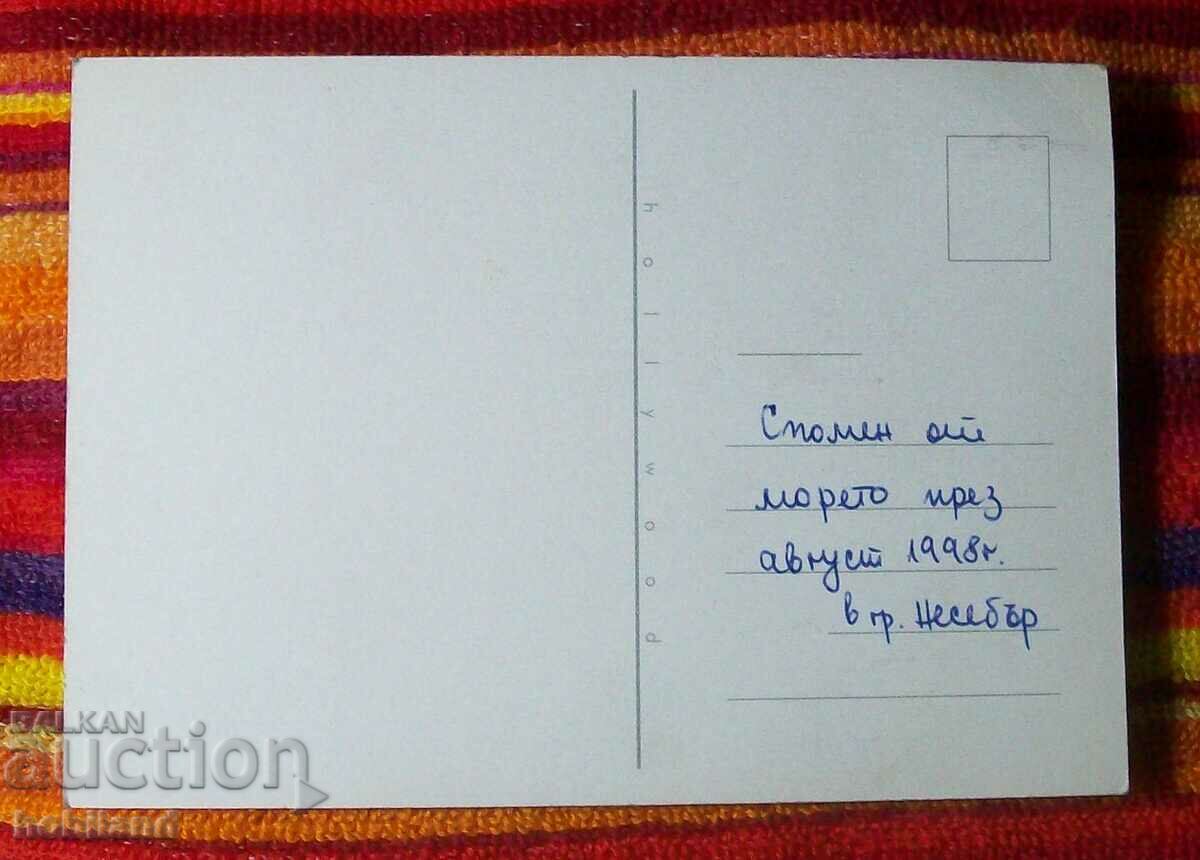 hollywood
Спомен от
морето през
август 1998г.
в гр. Несебър
BALKAN
auction
hobiland